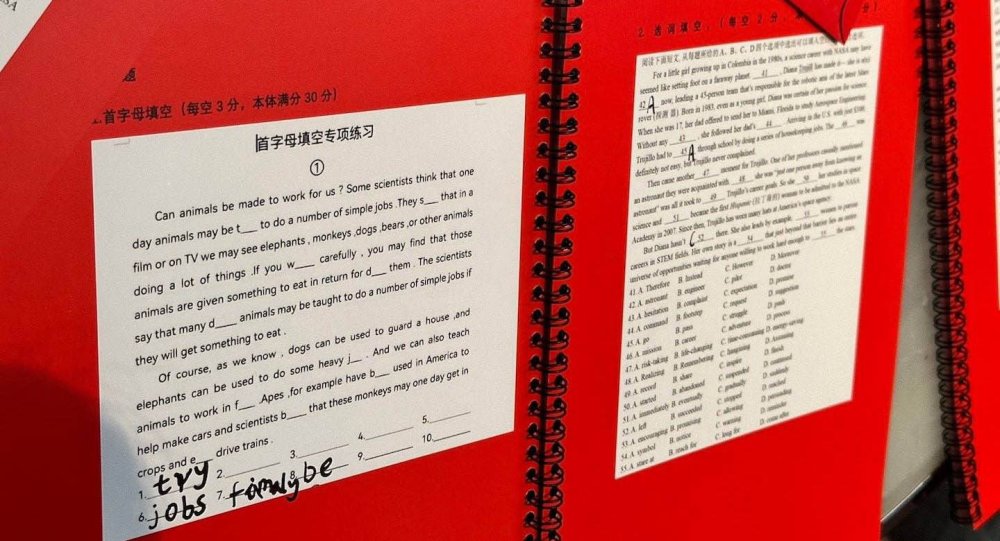 SA
题
首字母填空 (每空 3 分，本体满分 30 分)
首字母填空专项练习
①
Can animals be made to work for us ? Some scientists think that one
day animals may be t___ to do a number of simple jobs .They s___ that in a
film or on TV we may see elephants , monkeys ,dogs ,bears ,or other animals
doing a lot of things .If you w___ carefully , you may find that those
animals are given something to eat in return for d___ them . The scientists
say that many d___ animals may be taught to do a number of simple jobs if
they will get something to eat .
Of course, as we know , dogs can be used to guard a house ,and
elephants can be used to do some heavy j___ . And we can also teach
animals to work in f___ .Apes ,for example have b___ used in America to
help make cars and scientists b___ that these monkeys may one day get in
crops and e___ drive trains .
1. try 2. 3. 4. 5.
6. jobs 7. family 8. be 9. 10.
2. 选词填空，(每空 2 分，
分)
阅读下面短文, 从每题所给的 A、B、C、D 四个选项中选出可以填入空
For a little girl growing up in Colombia in the 1980s, a science career with NASA may have
seemed like setting foot on a faraway planet. 41 , Diana Trujill has made it— she is a(n)
42 A now, leading a 45-person team that's responsible for the robotic arm of the latest Mars
rover (探测器) Born in 1983, even as a young girl, Diana was certain of her passion for science.
When she was 17, her dad offered to send her to Miami, Florida to study Aerospace Engineering.
Without any 43 , she followed her dad's 44 . Arriving in the U.S. with just $300,
Trujillo had to 45 A through school by doing a series of housekeeping jobs. The 46 was
definitely not easy, but Trujillo never complained.
Then came another 47 moment for Trujillo. One of her professors casually mentioned
an astronaut they were acquainted with 48 she was "just one person away from knowing an
astronaut" was all it took to 49 Trujillo's career goals. So she 50 her studies in space
science and 51 became the first Hispanic woman to be admitted to the NASA
Academy in 2007. Since then, Trujillo has worn many hats at America's space agency.
But Diana hasn't C 52 there. She also leads by example, 53 women to pursue
careers in STEM fields. Her own story is a 54 that just beyond that barrier lies an entire
universe of opportunities waiting for anyone willing to work hard enough to 55 the stars.
41. A. Therefore B. Instead C. However D. Moreover
42. A. astronaut B. engineer C. pilot D. doctor
43. A. hesitation B. complaint C. expectation D. promise
44. A. command B. footstep C. request D. suggestion
45. A. go B. pass C. struggle D. push
46. A. mission B. career C. adventure D. process
47. A. risk-taking B. life-changing C. time-consuming D. energy-saving
48. A. Realizing B. Remembering C. Imagining D. Assuming
49. A. record B. share C. inspire D. finish
50. A. started B. abandoned C. suspended D. continued
51. A. immediately B. eventually C. gradually D. suddenly
52. A. left B. succeeded C. stopped D. reached
53. A. encouraging B. promising C. allowing D. persuading
54. A. symbol B. notice C. warning D. reminder
55. A. stare at B. reach for C. long for D. come after